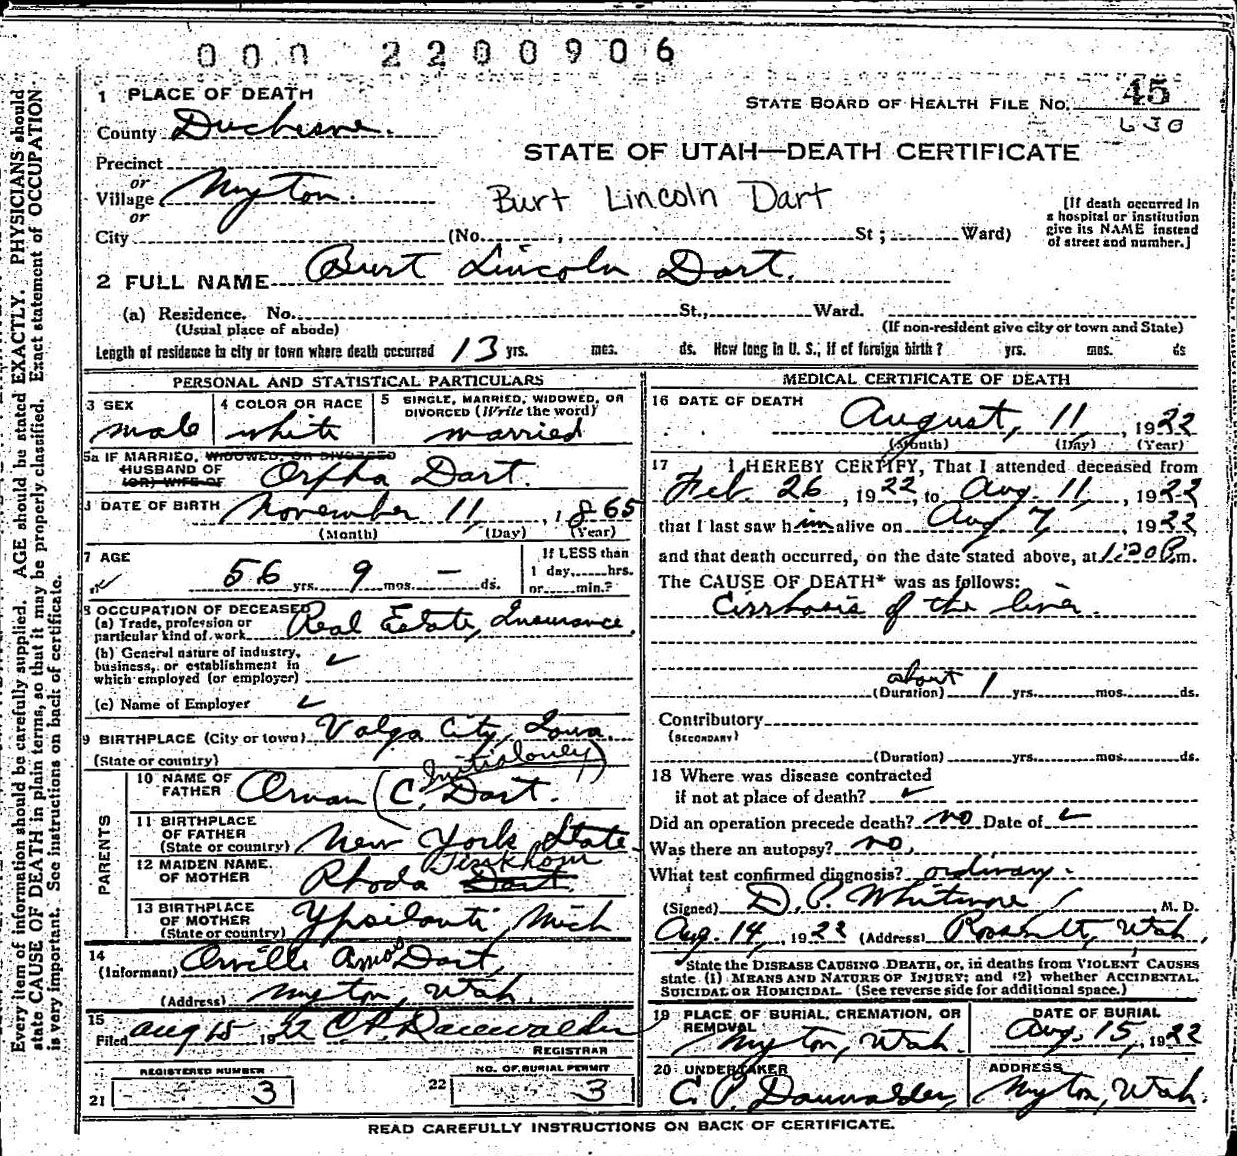 000 2200906
1 PLACE OF DEATH
STATE BOARD OF HEALTH FILE NO. 45
630
County Duchesne.
STATE OF UTAH—DEATH CERTIFICATE
Precinct
or
Village Myton.
Burt Lincoln Dart
[If death occurred in a hospital or institution give its NAME instead of street and number.]
or
City (No. , St ; Ward)
2 FULL NAME Burt Lincoln Dart.
(a) Residence. No. St., Ward.
(Usual place of abode) (If non-resident give city or town and State)
Length of residence in city or town where death occurred 13 yrs. mos. ds. How long in U. S., if of foreign birth? yrs. mos. ds
PERSONAL AND STATISTICAL PARTICULARS
3 SEX
male
4 COLOR OR RACE
white
5 SINGLE, MARRIED, WIDOWED, OR DIVORCED (Write the word)
married
5a IF MARRIED, WIDOWED, OR DIVORCED
HUSBAND OF
(OR) WIFE OF Orpha Dart.
DATE OF BIRTH November 11, 1865
(Month) (Day) (Year)
7 AGE
56 yrs. 9 mos. — ds.
If LESS than
1 day, hrs.
or min.?
8 OCCUPATION OF DECEASED
(a) Trade, profession or
particular kind of work Real Estate, Insurance.
(b) General nature of industry,
business, or establishment in
which employed (or employer)
(c) Name of Employer
9 BIRTHPLACE (City or town) Volga City, Iowa.
(State or country)
PARENTS
10 NAME OF
FATHER Orman (C. Dart. (Initial only)
11 BIRTHPLACE
OF FATHER
(State or country) New York State
12 MAIDEN NAME
OF MOTHER Rhoda Dart. Tinkham
13 BIRTHPLACE
OF MOTHER
(State or country) Ypsilanti, Mich
14
(Informant) Orville Amos Dart,
(Address) Myton, Utah.
15
Filed Aug 15 1922 C. P.
REGISTRAR
REGISTERED NUMBER
21 3
NO. OF BURIAL PERMIT
22 3
MEDICAL CERTIFICATE OF DEATH
16 DATE OF DEATH
August, 11, 1922
(Month) (Day) (Year)
17 I HEREBY CERTIFY, That I attended deceased from
Feb. 26, 1922, to Aug. 11, 1922
that I last saw him alive on Aug 7, 1922
and that death occurred, on the date stated above, at 1:20 P.m.
The CAUSE OF DEATH* was as follows:
Cirrhosis of the liver.
about
(Duration) 1 yrs. mos. ds.
Contributory
(SECONDARY)
(Duration) yrs. mos. ds.
18 Where was disease contracted
if not at place of death?
Did an operation precede death? no Date of
Was there an autopsy? no.
What test confirmed diagnosis? ordinary.
(Signed) D. P. Whitmore, M. D.
Aug. 14, 1922 (Address) Roosevelt, Utah.
State the DISEASE CAUSING DEATH, or, in deaths from VIOLENT CAUSES
state (1) MEANS AND NATURE OF INJURY; and (2) whether ACCIDENTAL,
SUICIDAL OR HOMICIDAL. (See reverse side for additional space.)
19 PLACE OF BURIAL, CREMATION, OR
REMOVAL
Myton, Utah.
DATE OF BURIAL
Aug. 15, 1922
20 UNDERTAKER
C. P.
ADDRESS
Myton, Utah.
READ CAREFULLY INSTRUCTIONS ON BACK OF CERTIFICATE.
Every item of information should be carefully supplied. AGE should be stated EXACTLY. PHYSICIANS should
state CAUSE OF DEATH in plain terms, so that it may be properly classified. Exact statement of OCCUPATION
is very important. See instructions on back of certificate.